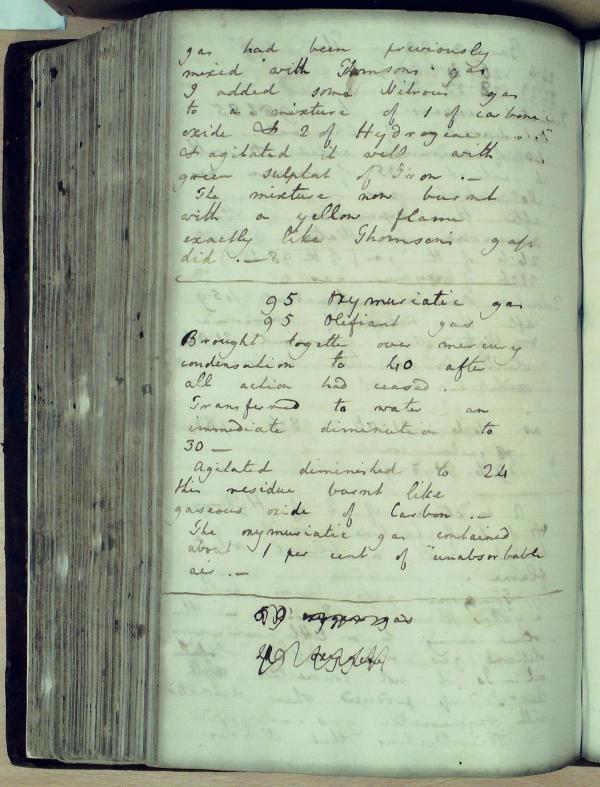 gas had been previously
mixed with Thomsons gas
I added some Nitrous gas
to a mixture of 1 of carbonic
oxide & 2 of Hydrogene
& agitated it well with
green sulphat of Iron .—
The mixture now burnt
with a yellow flame
exactly like Thomson's gas
did .—
95 Oxymuriatic gas
95 Olefiant gas
Brought together over mercury
condensation to 40 after
all action had ceased .
Transferred to water an
immediate diminution to
30 —
Agitated diminished to 24
this residue burnt like
gaseous oxide of Carbon .—
The oxymuriatic gas contained
about 1 per cent of unabsorbable
air .—